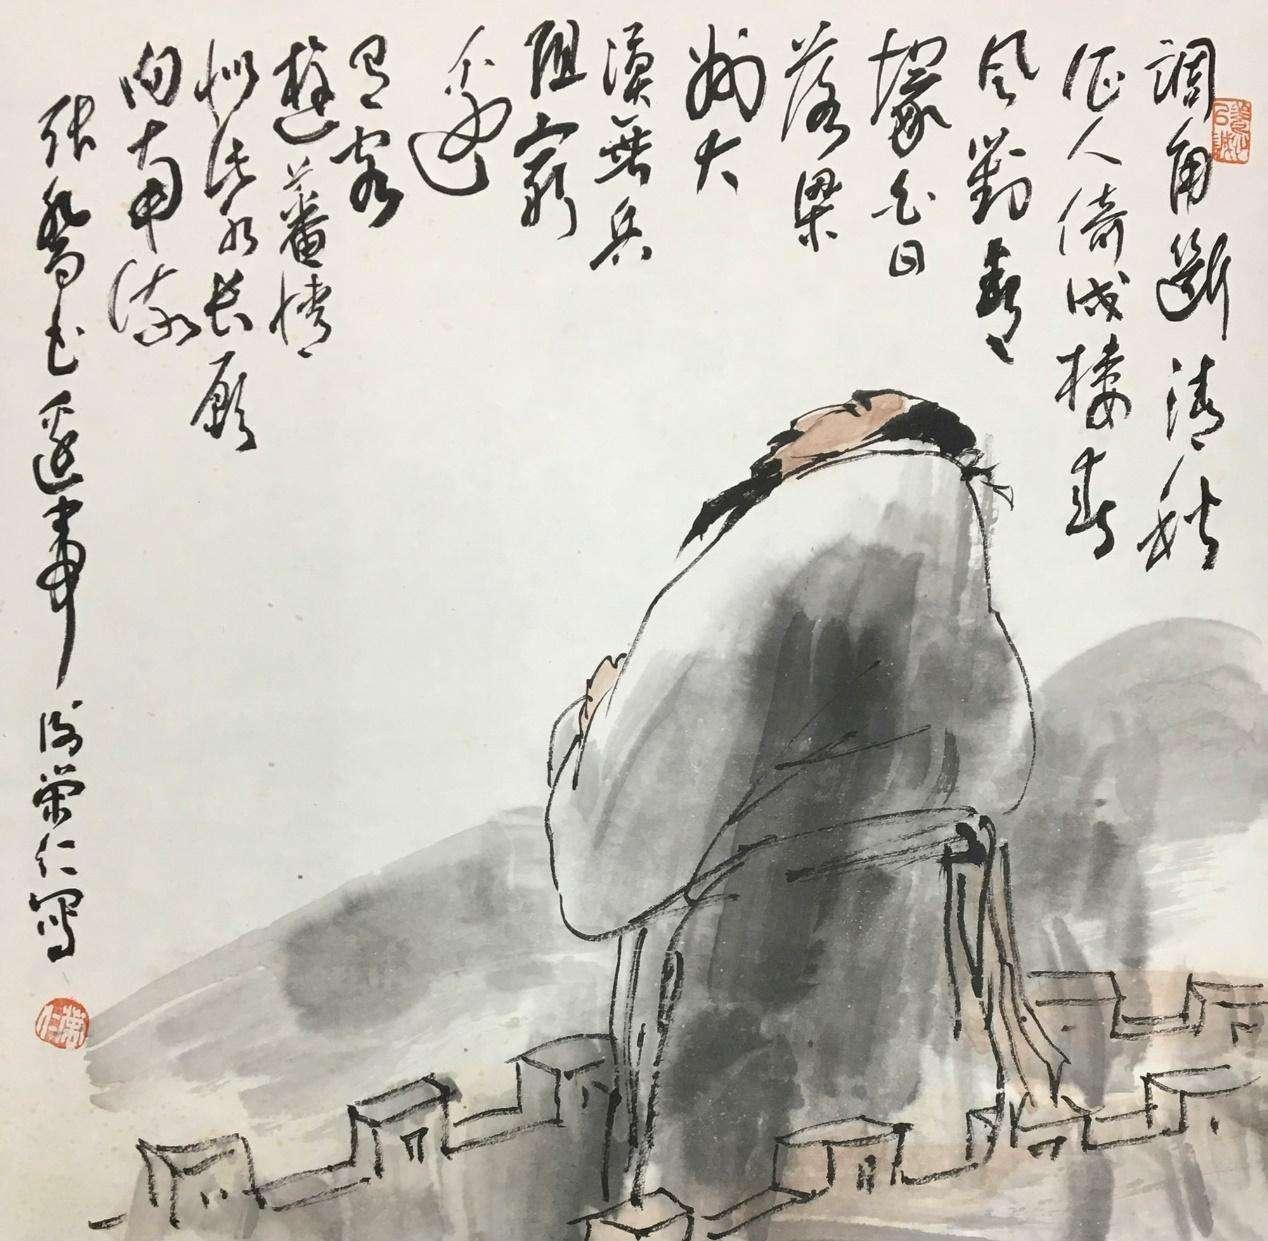 調角斷清秋
征人倚戍樓春
風對青
塚白日
落梁
州大
漠無兵
阻窮
邊
有客
遊蕃情
似此水長願
向南流
張喬書邊事 榮仁寫
榮仁